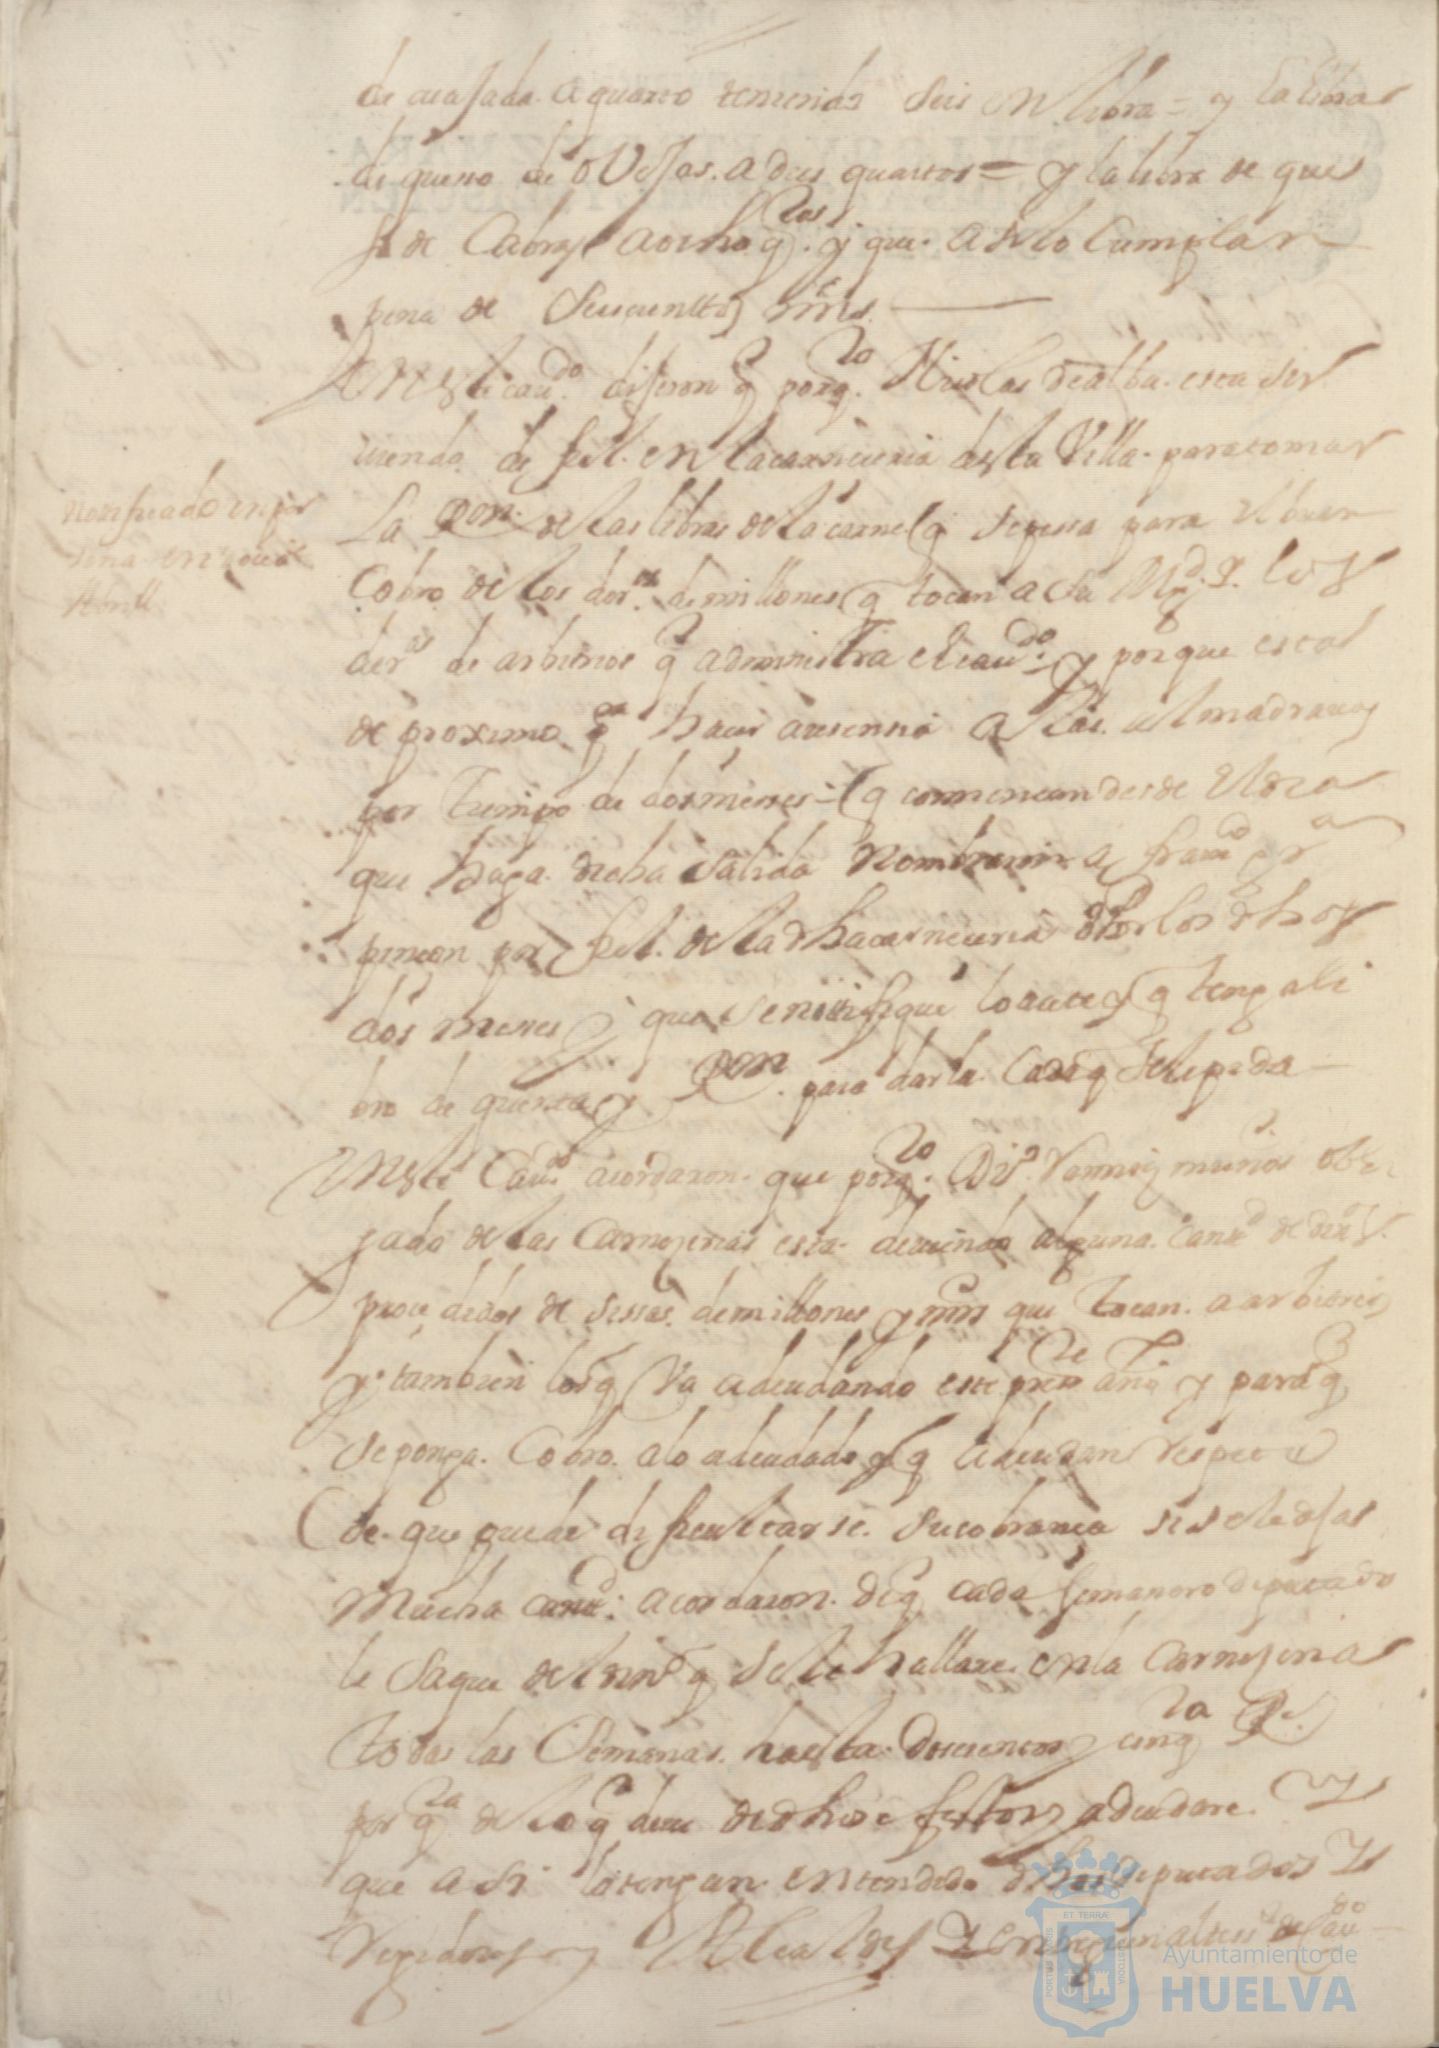 de cuajada. a quarto temiendo seis en libra = y la libra
de queso de obejas. a dies quartos = y la libra de ques
so de Cabras a ocho q.tos y que asi lo Cumplan
pena de Seiscientos mrs.
En este cau.do dijeron q porq.to Nicolas de alba. esta sir
uiendo de fiel. en la carniceria desta Villa. para tomar
La Ron. de las libras de la carne q se pessa para el buen
Cobro de los dos de millones q tocan a su Mg.d y los
der.os de arbitrios q administra el cau.do y porque esta
de proximo p.a hacer aussensia a las almadrauas
por tiempo de dos messes = q comiencan desde el dia
que haga. dicha salida Nombraron a fran.co
pincon por fiel. de la dha carneceria por los dhos
dos meses y que se notifique lo acete y q tenga li
bro de quenta y Ron. para darla. Cada q se le pida
Notificado en per
sona en
Abrill
En este Cau.do acordaron. que porq.to Di.o Ramires muños obli
gado de las Carnizerias esta. deuiendo alguna. Cant.d de din.o
procedidos de sissas. de millones y mrs que tocan. a arbitrios
y tambien los q va adeudando este press.te año y para q
se ponga. Cobro. a lo adeudado y q adeudare respeto
de que puede dificultarse. su cobranca si se le dejas
Mucha cant.d acordaron. de q cada semanero diputado
le saque del din.o q se le hallare. en la Carnizeria
todas las Semanas. hasta. doscientos y cinq.ta Rs.
por q.ta de lo q deue de dhos efectos y adeudare. Y
que asi lo tengan entendido dhos diputados Y
Regidores y Alcaldes Y de Cau.do
ET TERRÆ
PORTUS MARIS
CUSTODIA
Ayuntamiento de
HUELVA